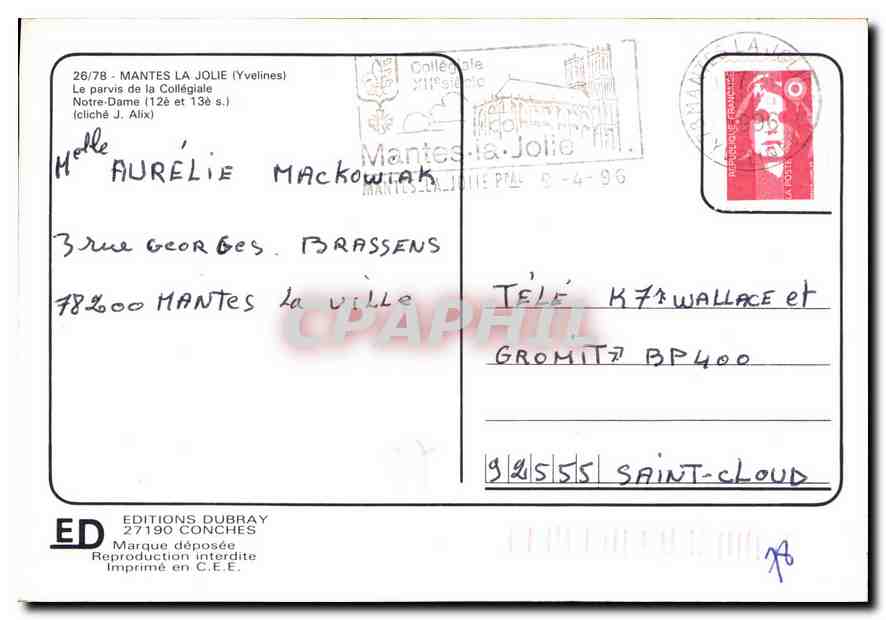 26/78 - MANTES LA JOLIE (Yvelines)
Le parvis de la Collégiale
Notre-Dame (12è et 13è s.)
(cliché J. Alix)
Collégiale
XIIe siècle
Mantes-la-Jolie
MANTES-LA-JOLIE PPAL 9-4-96
MANTES LA JOLIE
RÉPUBLIQUE FRANÇAISE
LA POSTE
Melle AURÉLIE MACKOWIAK
3 rue GEORGES. BRASSENS
78200 MANTES La VILLE
TÉLÉ K7 WALLACE et
GROMIT BP400
92555 SAINT-CLOUD
CPAPHIL
ED
EDITIONS DUBRAY
27190 CONCHES
Marque déposée
Reproduction interdite
Imprimé en C.E.E.
78